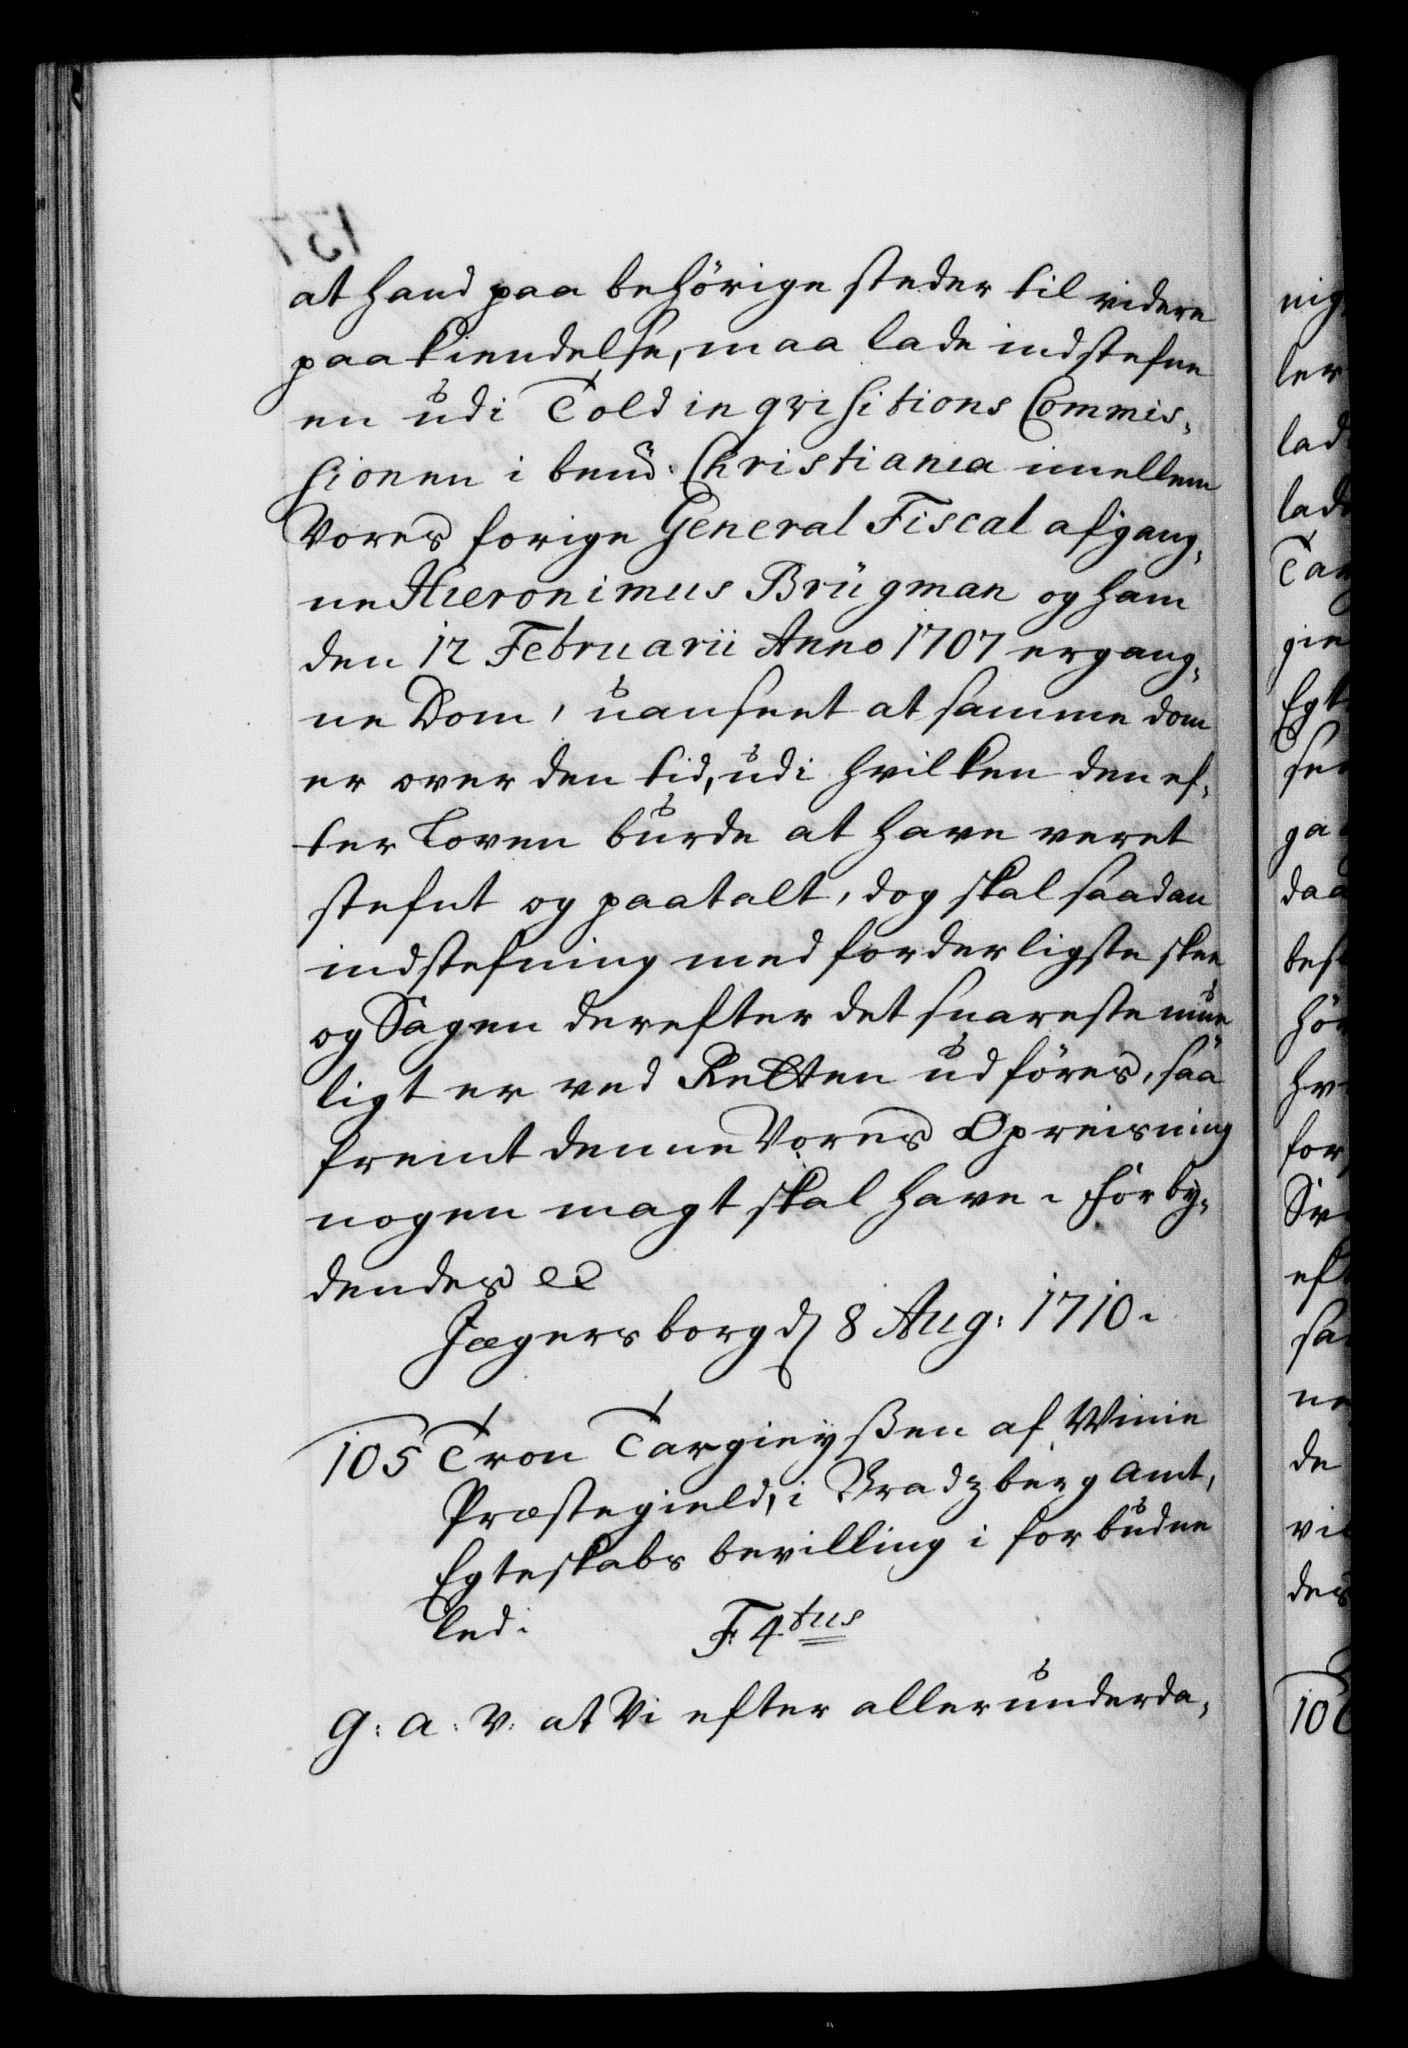 at hand paa behörige steder til videre
paakiendelse, maa lade indstefne
en udi Told inqvisitions Commis-
sionen i bemt: Christiania imellem
Vores forige General Fiscal afgang-
ne Hieronimus Brügman og ham
den 12 Februarii Anno 1707 ergang-
ne Dom, uanseet at samme dom
er over den tid, udi hvilken den ef-
ter Loven burde at have veret
stefnt og paatalt, dog skal saadan
indstefning med forderligste skee
og Sagen derefter det snareste mue-
ligt er ved Retten udföres, saa
fremt denne Vores Opreisning
nogen magt skal have. Forby-
dendes etc
Jægersborg d 8 Aug: 1710.
105 Tron Targieyßen af Winie
Præstegield, i Bradzberg Amt,
Egteskabs bevilling i forbudne
led. F. 4tus
G: A: V: at Vi efter allerunderda-